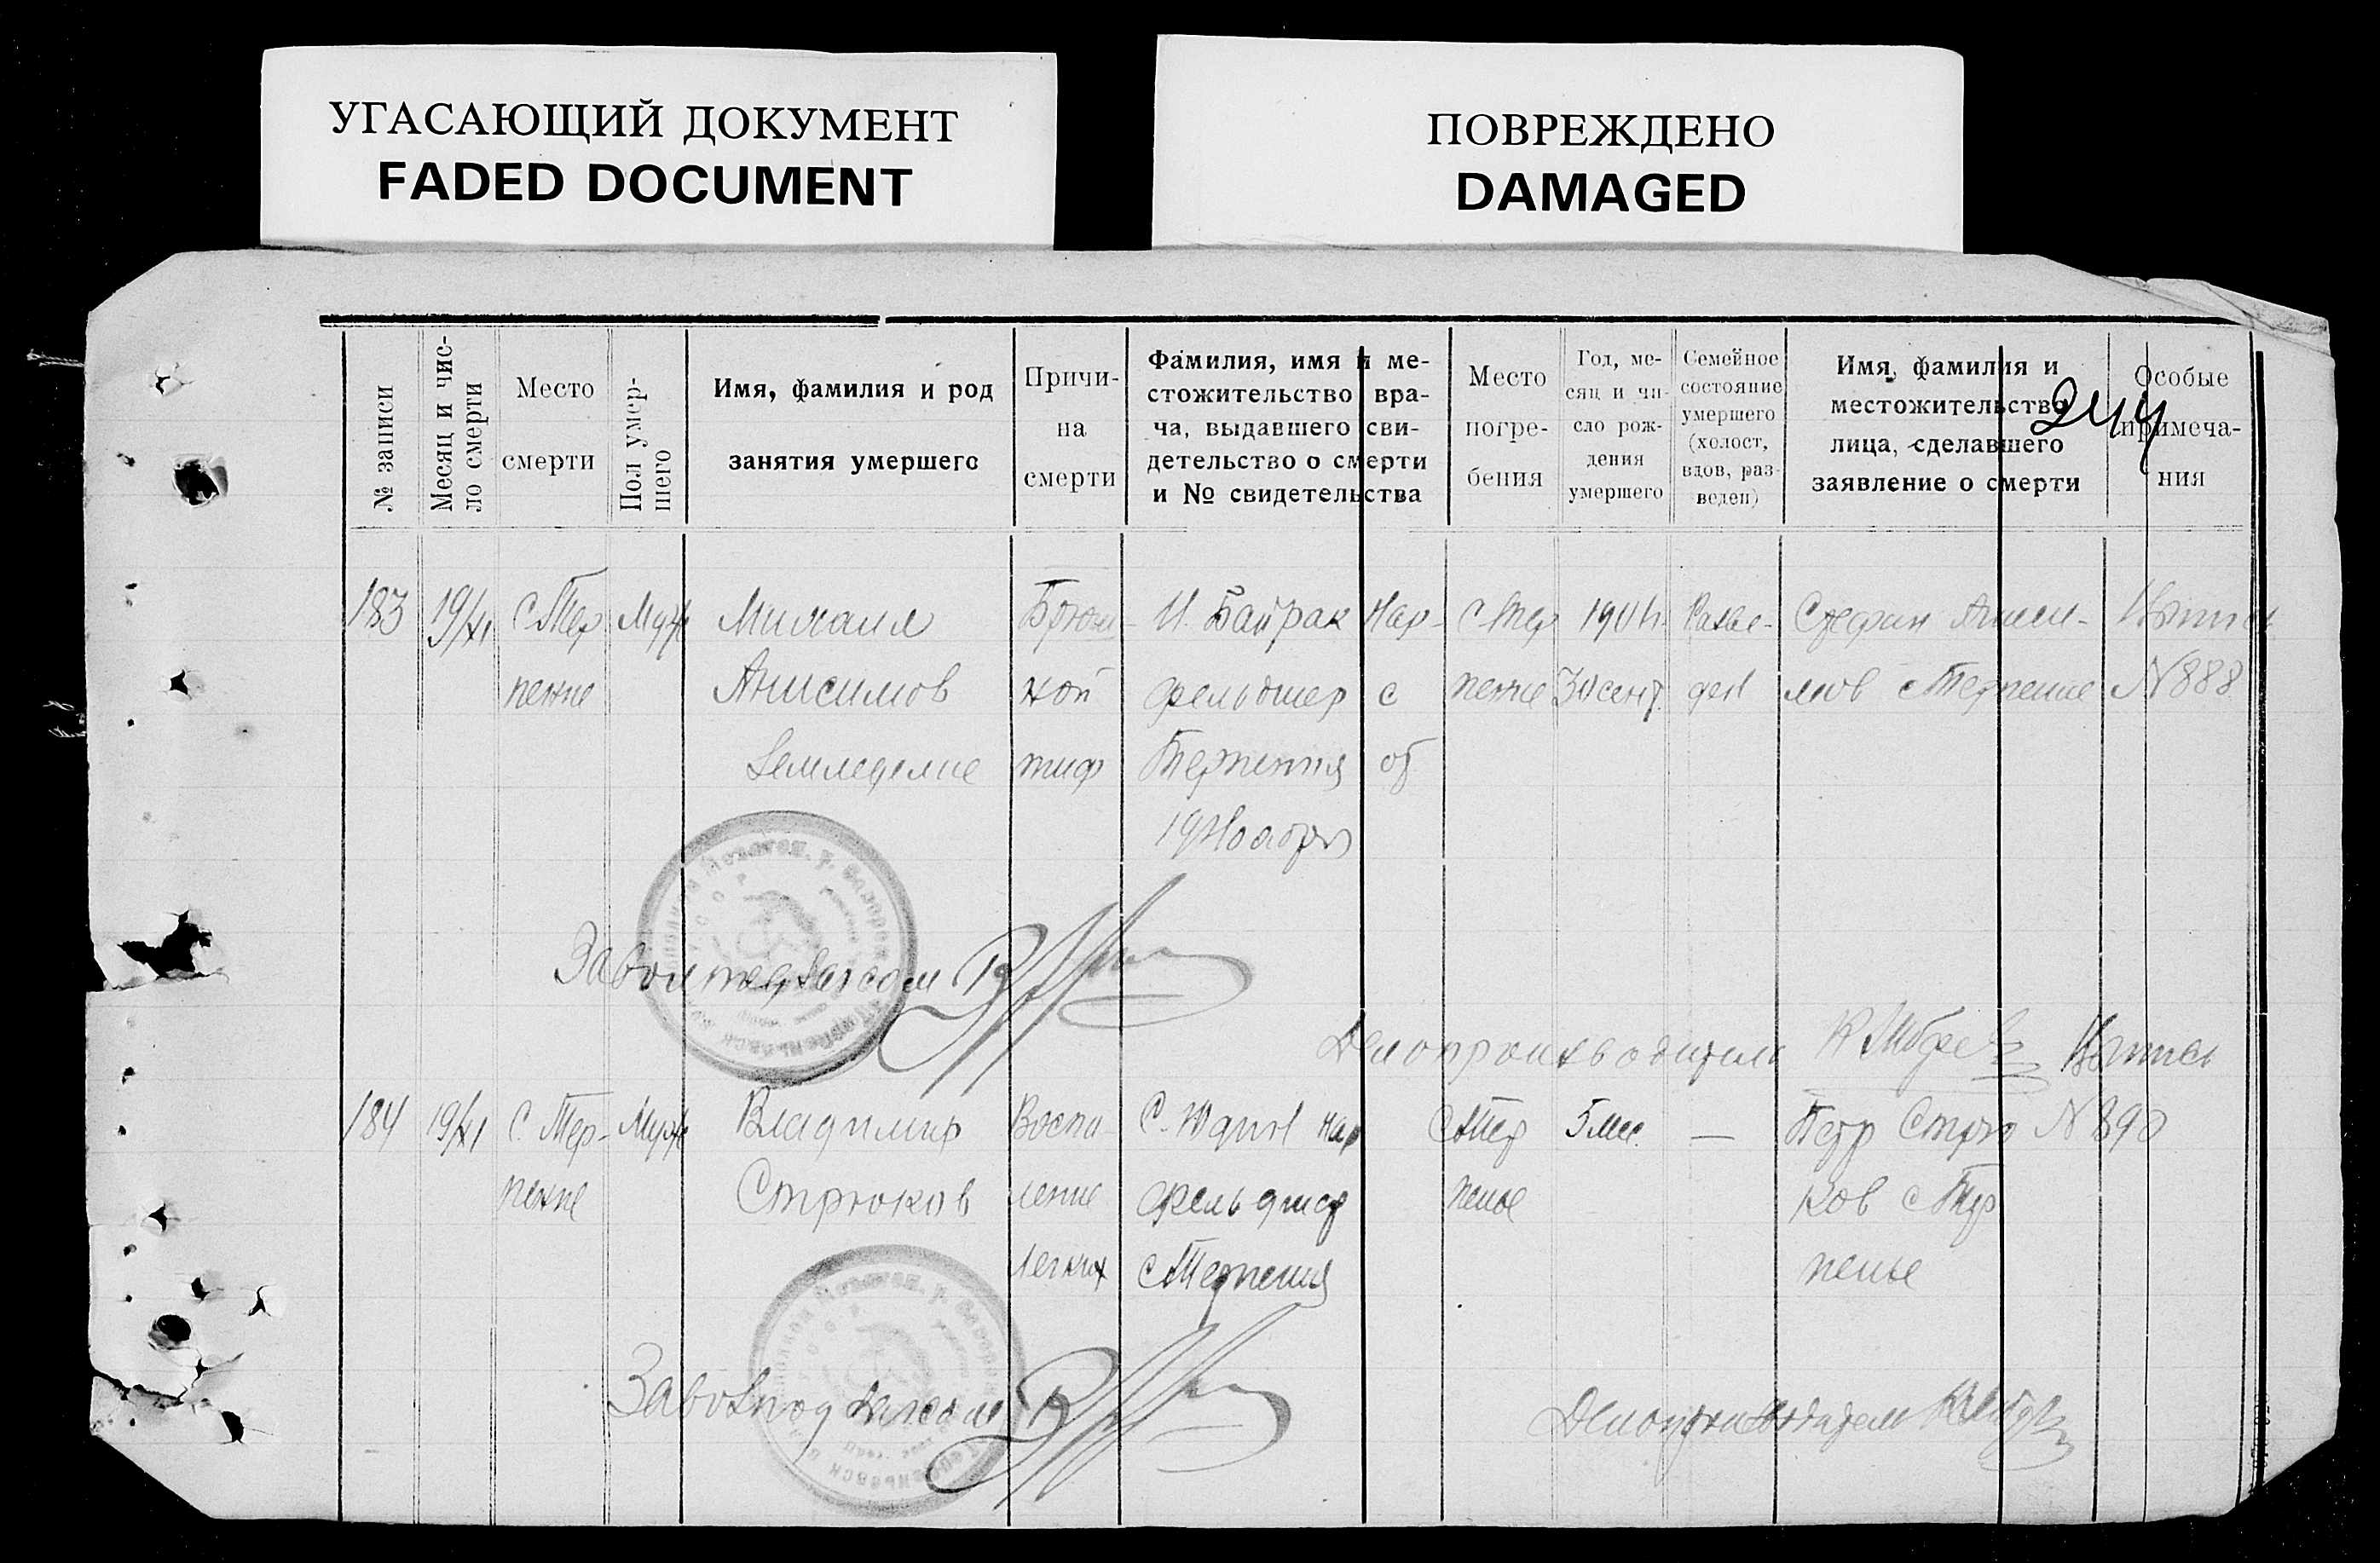 УГАСАЮЩИЙ ДОКУМЕНТ
FADED DOCUMENT
ПОВРЕЖДЕНО
DAMAGED
№ записи
Месяц и чис-
ло смерти
Место
смерти
Пол умер-
шего
Имя, фамилия и род
занятия умершего
Причи-
на
смерти
Фамилия, имя и ме-
стожительство вра-
ча, выдавшего сви-
детельство о смерти
и № свидетельства
Место
погре-
бения
Год, ме-
сяц и чи-
сло рож-
дения
умершего
Семейное
состояние
умершего
(холост,
вдов, раз-
веден)
Имя, фамилия и
местожительство
лица, сделавшего
заявление о смерти
Особые
примеча-
ния
244
183
19/XI
С. Тер
пение
Муж
Михаил
Анисимов
Земледелие
Брюш-
ной
тиф
И. Байрак Нар-
фельдшер с
Терпения от
19 Ноября
с Тер
пение
30 сент.
Разве-
ден
Стефан Аниси-
мов с Терпение
Выпись
N 888
Делопроизводитель
184
19/XI
С. Тер-
пение
Муж
Владимир
Стрюков
Воспа-
ление
легких
С. Нар
фельдшер
с Терпения
с Тер
пенье
5 мес.
—
Петр Стрю
ков с Тер
пенье
Выпись
N 890
Делопроизводитель